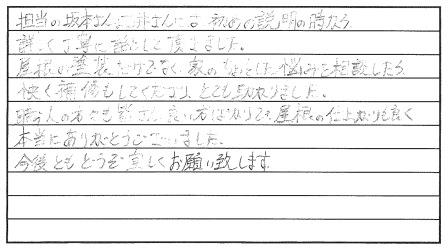 担当の坂本さん、
詳しく丁寧に話して頂きました。
屋根の塗装だけでなく家のちょっとした悩みを相談したら
快く補修もしてくださり、とても助かりました。
職人の方々も皆さん良い方ばかりでも屋根の仕上がりも良く
本当にありがとうございました。
今後ともどうぞ宜しくお願い致します